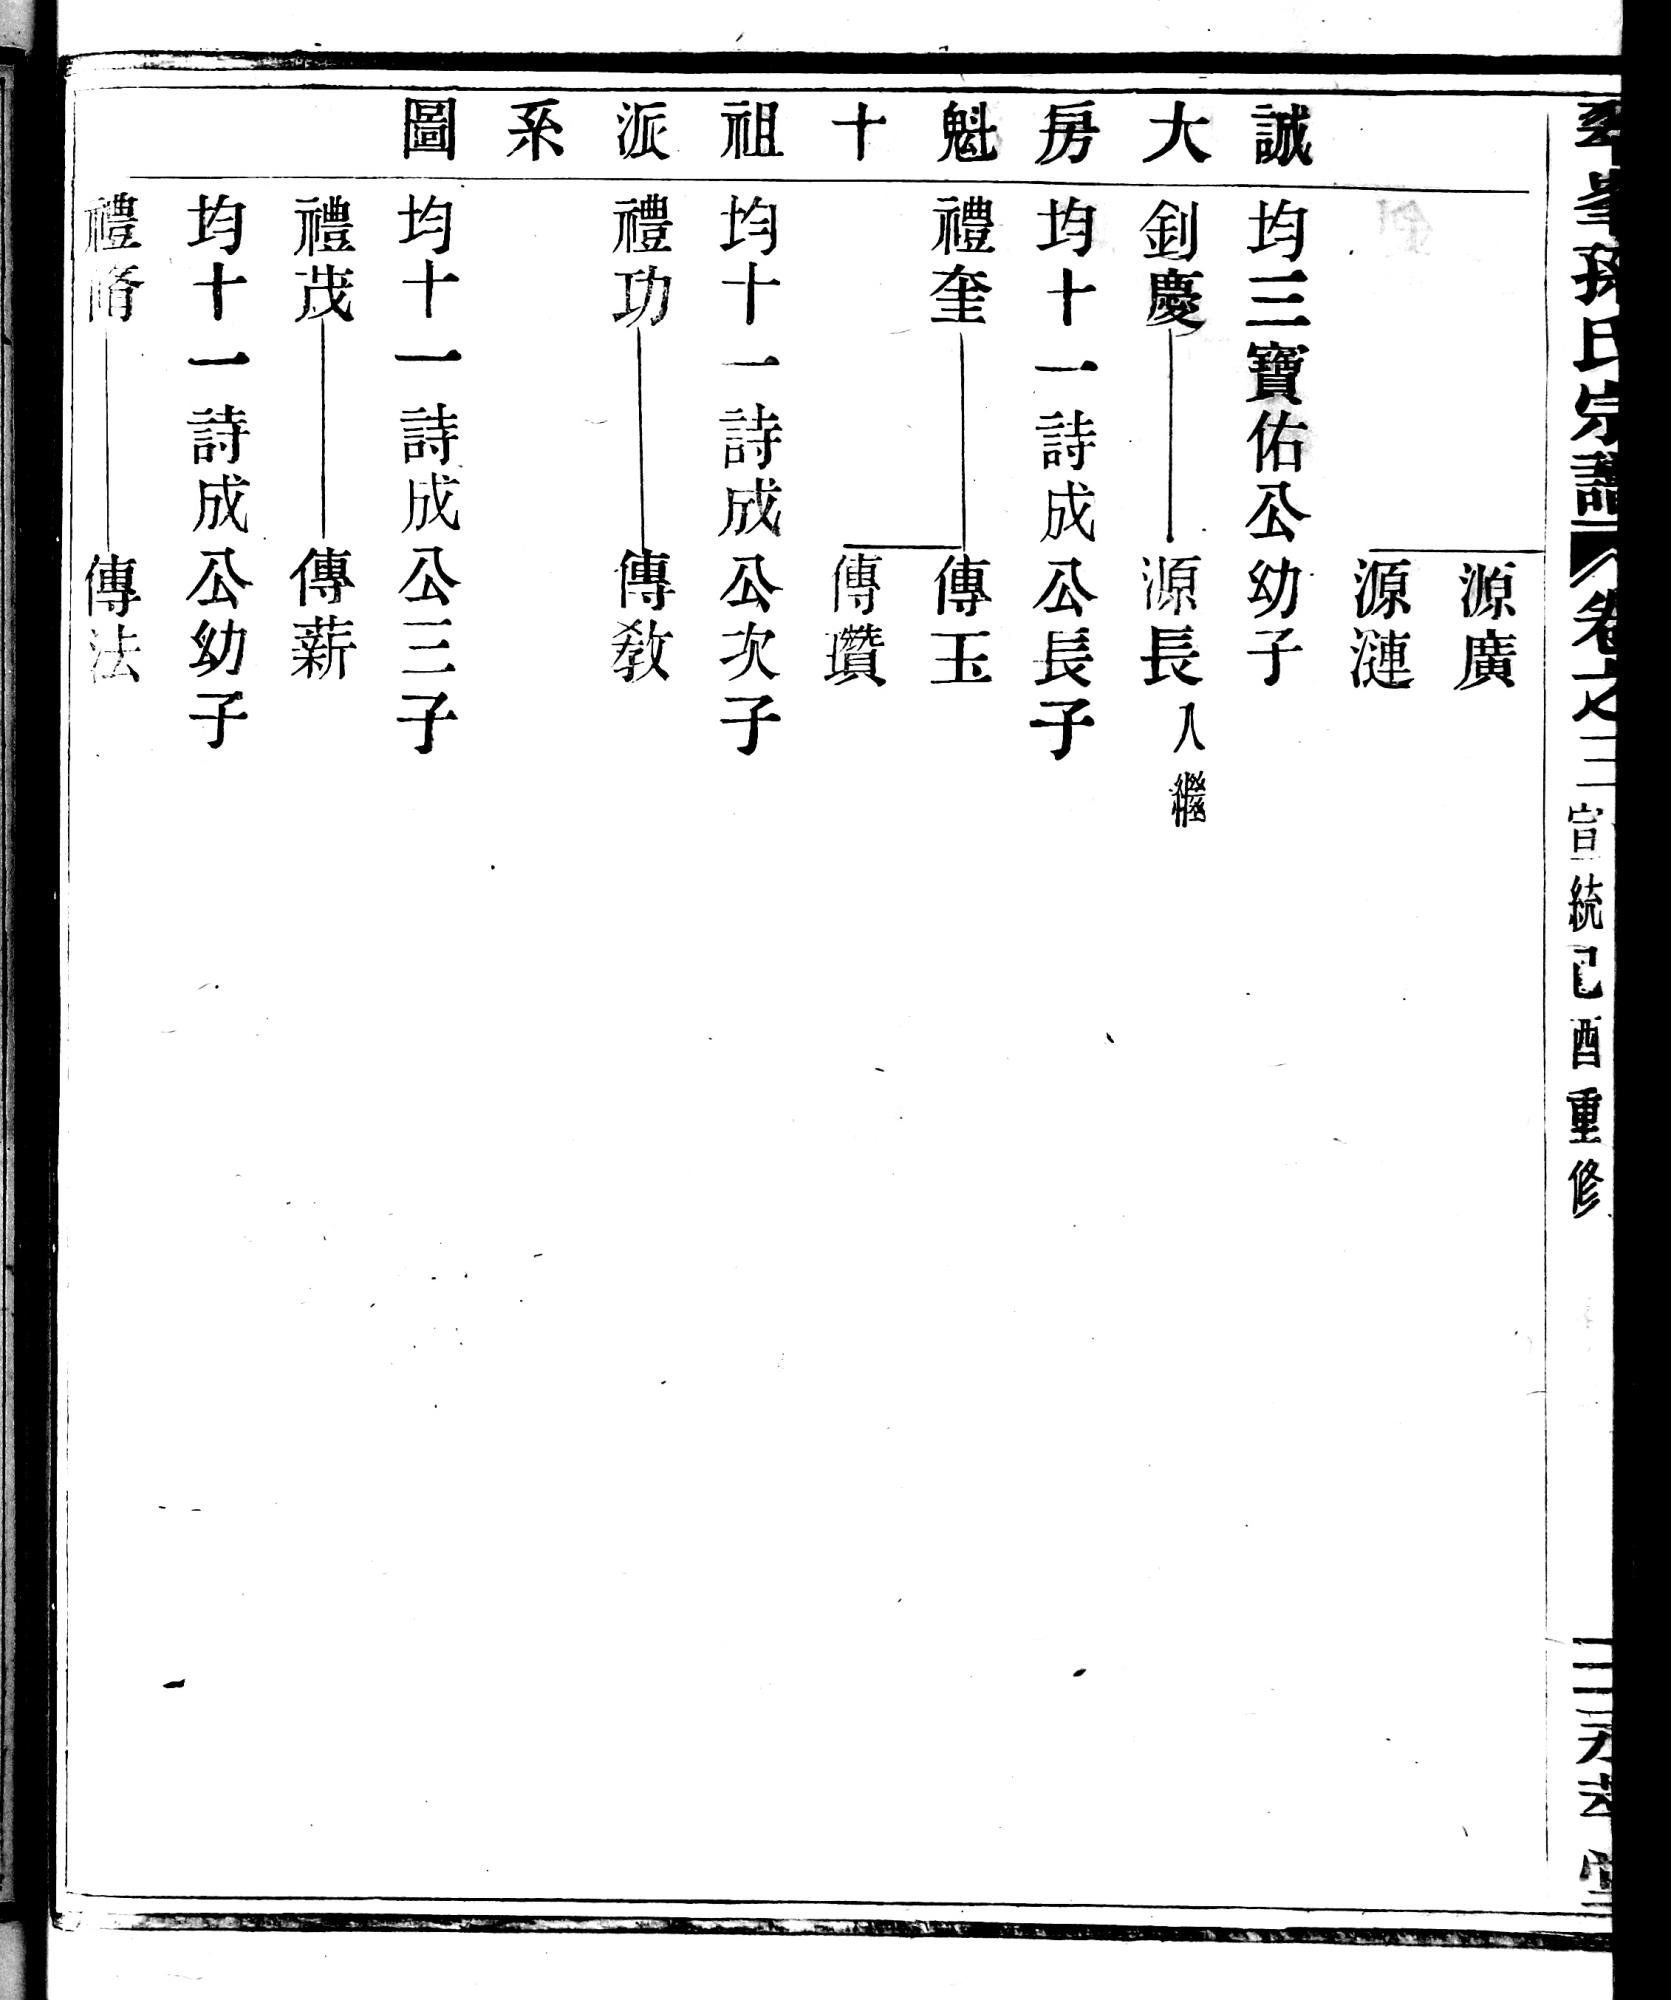 孫氏宗譜 卷之三 宣統己酉重修 二 堂
誠大房魁十祖派系圖
源廣
源漣
均三寶佑公幼子
釗慶 源長 入繼
均十一詩成公長子
禮奎 傳玉
傳瓚
均十一詩成公次子
禮功 傳教
均十一詩成公三子
禮茂 傳薪
均十一詩成公幼子
禮脩 傳法